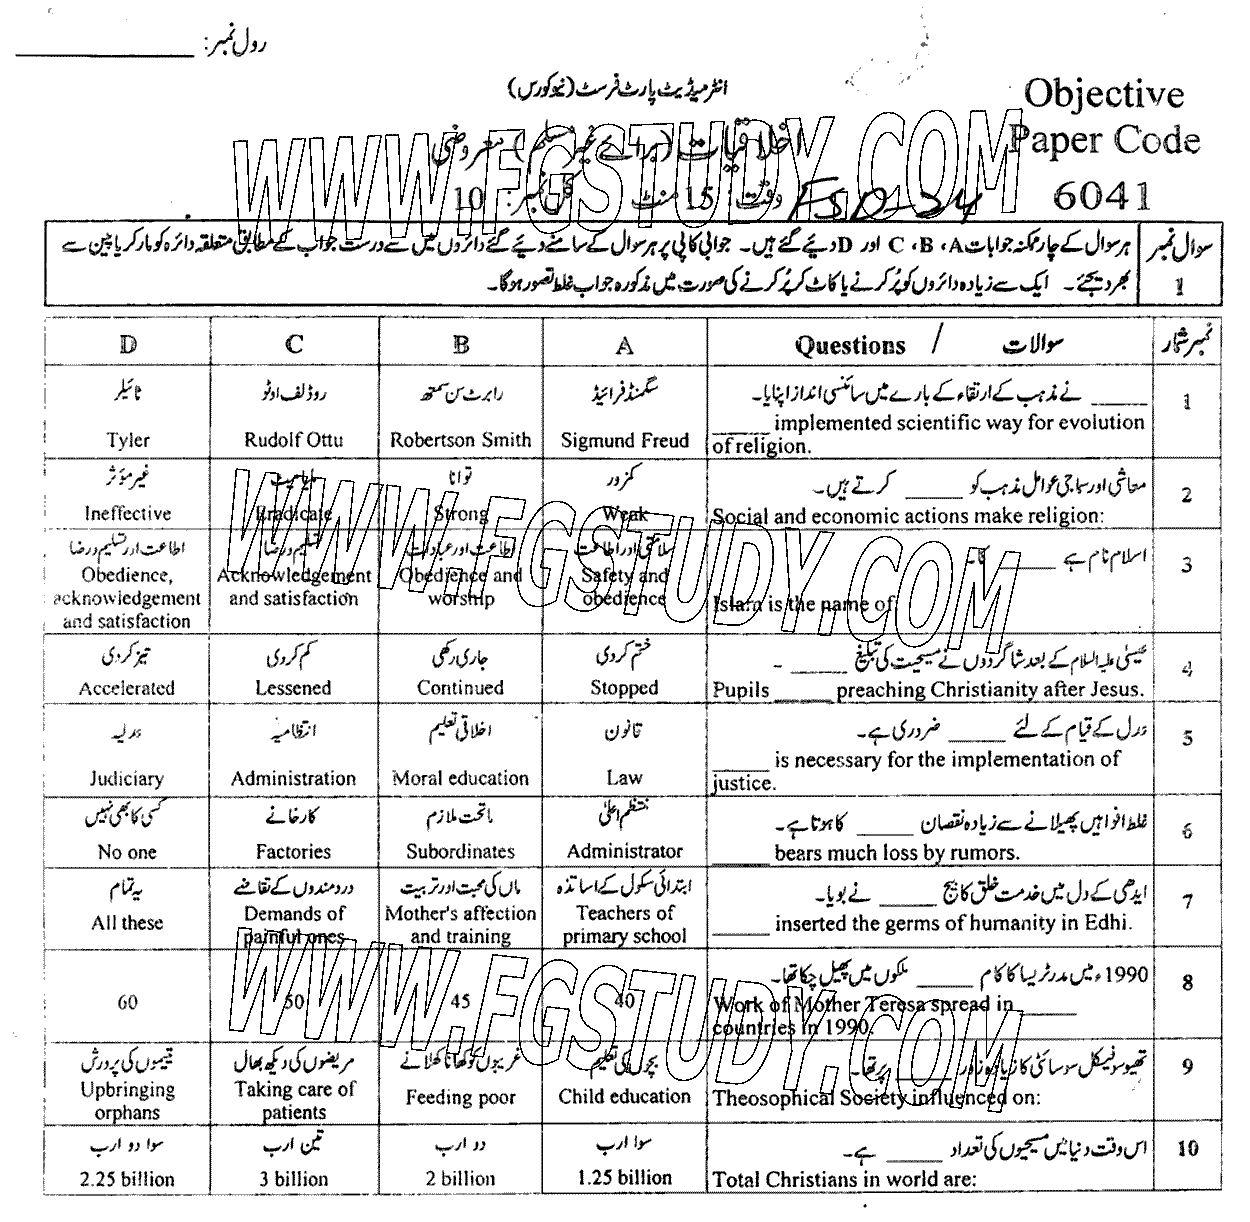 رول نمبر:
انٹرمیڈیٹ پارٹ فرسٹ (نیو کورس)
Objective
Paper Code
6041
اخلاقیات (برائے غیر مسلم) معروضی
وقت: 15 منٹ
کل نمبر: 10
FSD-24
WWW.FGSTUDY.COM
سوال نمبر 1
ہر سوال کے چار ممکنہ جوابات A، B، C اور D دیئے گئے ہیں۔ جوابی کاپی پر ہر سوال کے سامنے دیئے گئے دائروں میں سے درست جواب کے مطابق متعلقہ دائرہ کو مارکر یا پین سے
بھر دیجئے۔ ایک سے زیادہ دائروں کو پُر کرنے یا کاٹ کر پُر کرنے کی صورت میں مذکورہ جواب غلط تصور ہوگا۔
نمبر شمار
سوالات / Questions
A
B
C
D
1
______ نے مذہب کے ارتقاء کے بارے میں سائنسی انداز اپنایا۔
______ implemented scientific way for evolution
of religion.
سگمنڈ فرائیڈ
Sigmund Freud
رابرٹ سن سمتھ
Robertson Smith
روڈلف اوٹو
Rudolf Ottu
ٹائیلر
Tyler
2
معاشی اور سماجی عوامل مذہب کو ______ کرتے ہیں۔
Social and economic actions make religion:
کمزور
Weak
توانا
Strong
Eradicate
غیر مؤثر
Ineffective
3
اسلام نام ہے ______ کا۔
Islam is the name of
سلامتی اور اطاعت
Safety and
obedience
اطاعت اور عبادات
Obedience and
worship
تسلیم و رضا
Acknowledgement
and satisfaction
اطاعت اور تسلیم و رضا
Obedience,
acknowledgement
and satisfaction
4
عیسیٰ علیہ السلام کے بعد شاگردوں نے مسیحیت کی تبلیغ ______ -
Pupils ______ preaching Christianity after Jesus.
ختم کر دی
Stopped
جاری رکھی
Continued
کم کر دی
Lessened
تیز کر دی
Accelerated
5
عدل کے قیام کے لئے ______ ضروری ہے۔
______ is necessary for the implementation of
justice.
قانون
Law
اخلاقی تعلیم
Moral education
انتظامیہ
Administration
عدلیہ
Judiciary
6
غلط افواہیں پھیلانے سے زیادہ نقصان ______ کا ہوتا ہے۔
______ bears much loss by rumors.
منتظم اعلیٰ
Administrator
ماتحت ملازم
Subordinates
کارخانے
Factories
کسی کا بھی نہیں
No one
7
ایدھی کے دل میں خدمت خلق کا بیج ______ نے بویا۔
______ inserted the germs of humanity in Edhi.
ابتدائی سکول کے اساتذہ
Teachers of
primary school
ماں کی محبت اور تربیت
Mother's affection
and training
دردمندوں کے تقاضے
Demands of
painful ones
یہ تمام
All these
8
1990ء میں مدر ٹریسا کا کام ______ ملکوں میں پھیل چکا تھا۔
Work of Mother Teresa spread in ______
countries in 1990.
40
45
50
60
9
تھیوسوفیکل سوسائٹی کا زیادہ زور ______ پر تھا۔
Theosophical Society influenced on:
بچوں کی تعلیم
Child education
غریبوں کو کھانا کھلانے
Feeding poor
مریضوں کی دیکھ بھال
Taking care of
patients
یتیموں کی پرورش
Upbringing
orphans
10
اس وقت دنیا میں مسیحیوں کی تعداد ______ ہے۔
Total Christians in world are:
سوا ارب
1.25 billion
دو ارب
2 billion
تین ارب
3 billion
سوا دو ارب
2.25 billion
WWW.FGSTUDY.COM
WWW.FGSTUDY.COM